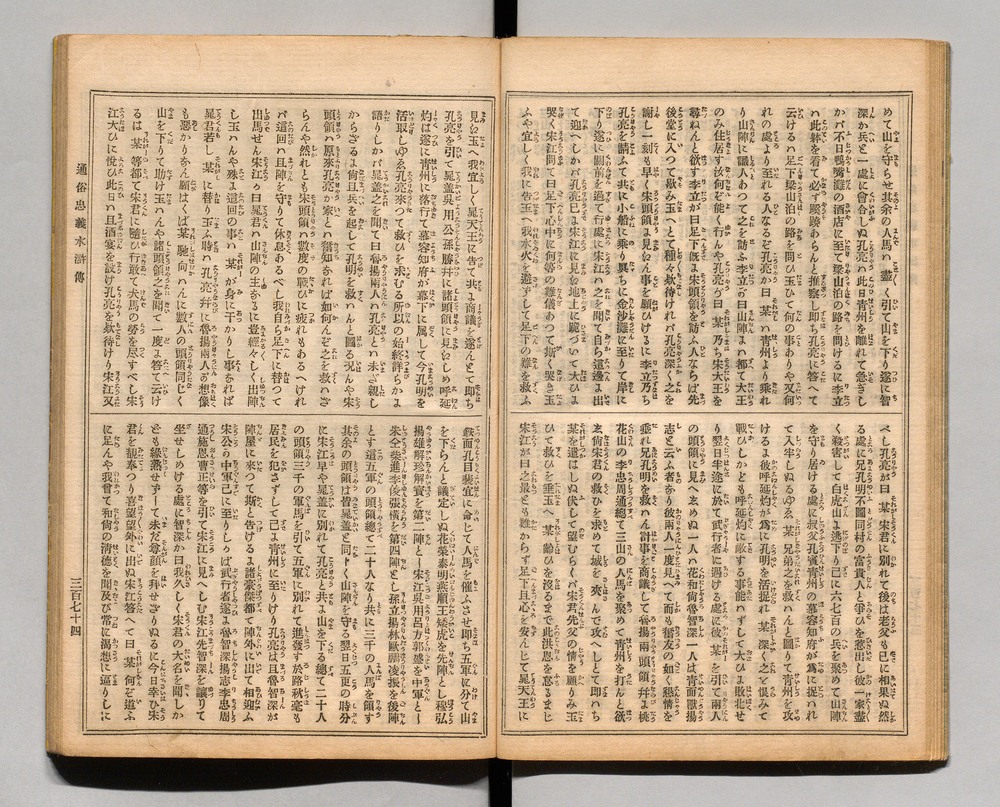 めて山を守らせ其余の人馬ハ盡く引て山を下り遂に智
深か兵と一處に會合しぬ孔亮ハ此日青州を離れて急ぎし
かバ不日鴨嘴灘の酒店に至て梁山泊の路を問けるに李立
ハ此躰を看て必ず縁故あらんと推察し即ち孔亮に答へて
云けるハ足下梁山泊の路を問ひ玉ひて何の事ありや又何
れの處より至れる人なるぞ孔亮が曰某ハ青州より乘れ
り山陣に識人あつて之を訪ふ李立が曰山陣ハ都て大王
のみ住居す汝何ぞ能く行んや孔亮が曰某乃ち宋大王を
尋ねんと欲す李立が曰足下既に宋頭領を訪ふ人ならば先
後堂に入つて歇み玉へとて種々欸待れバ孔亮深く之を
謝し一刻も早く宋頭領に見ん事を願ひけるに李立乃ち
孔亮を請ふて共に小船に乘り異ちに金沙灘に至りて岸に
下り遂に關前を過て行處に宋江ハ之を聞て自ら這邊ま出
て迎へしかバ孔亮已に宋江に見へ地上に跪づいて大ひに
哭く宋江問て曰足下心中に何等の難儀あつて斯く哭き玉
ふや宜しく我に告玉へ我水火を避ずして足下の難を救ふ
べし孔亮が曰某宋君に別れて後は老父も已に相果ぬ然
る處に兄孔明不圖同村の富貴人と爭ひを惹出し彼一家盡
く殺害して白虎山に逃下り已に六七百の兵を聚めて山陣
を守り居ける處に叔父孔賓青州の慕容知府が爲に捉ハれ
て入牢しぬるゆゑ某兄弟之を救ハんと圖りて青州を攻
けるに彼呼延灼が爲に孔明を活捉れ某深く之を恨みて
戰ひしかども呼延灼に敵する事能ハずして大ひに敗北せ
り翌日半途に於て武行者に遇ける處に彼某を引て兩人
の頭領に見へ玉めぬ一人ハ花和尚魯智深一人は青面獸揚
志と云ふ者なり彼兩人一度見へて而も舊友の如く懇情を
垂れ兄孔明を救ハん計事を商議して魯揚兩頭領幷に桃
花山の李忠周通總て三山の人馬を聚めて青州を打んと欲
ゑ尚宋君の救ひを求めて城を夾んで攻へしとして即ハち
某を遣はしぬ伏して望むらくバ宋君先父の情を顧りみ玉
ひて救ひを垂玉へ某齢ひを沒るまで此洪恩を忘るまじ
宋江が曰之最とも難からず足下且心を安んじて晁天王に
見へ玉へ我宜しく晁天王に告て共に商議を遂んとて即ち
孔亮を引て晁盖吳用公孫勝幷に諸頭領に見へしめ呼延
灼は遂に青州に落行て慕容知府が幕下に属して今孔明を
活取しゆゑ孔亮來つて救ひを求むる所以の始終詳らかに
語りしかバ晁盖之を聞て曰魯揚兩人ハ孔亮とハ未ざ親し
からざるに尚且兵を起して孔明を救ハんと圖る况んや宋
頭領ハ原來孔亮が家とハ舊知なれば如何んぞ之を救ハざ
らんや然れとも宋頭領ハ數度の戰ひに疲れもあるへけれ
バ這回ハ且陣を守りて休息あるべし我自ら足下に替つて
出馬せん宋江が曰晁君ハ山陣の主なるに豈輕々しく出陣
し玉ハんや殊に這回の事ハ某が身に干かりし事なれば
晁君若し某に替り玉ハん時ハ孔亮幷に魯揚兩人の想像
も惡かりなん願はくば某馳向ハんに數人の頭領同じく
山を下りて助け玉ハんや諸頭領之を聞て一度に答て云け
るは某等都て宋君に隨ひ行敢て犬馬の勞を尽すべし宋
江大ひに悅び此日ハ且酒宴を設け孔亮を欸待けり宋江又
戲面孔目裴宣に命じて人馬を催ふさせ即ち五軍に分て山
を下らんと議定しぬ花榮秦明燕順王矮虎を先陣とし穆弘
揚雄解珍解寶を第二陣とし宋江吳用呂方郭盛を中軍とし
朱仝柴進李俊張橫を第四陣とし孫立揚林歐鵬凌振を後陣
とす這五軍の頭領總て二十人なり共に三千の人馬を領す
其余の頭領は皆晁盖と同トく山陣を守る翌日五更の時分
に宋江早や晁盖に別れて孔亮と共に山を下る總て二十人
の頭領三千の軍馬を引て五軍に別れて進發す於路秋毫も
居民を犯さずして已に青州に至りけり孔亮は且魯智深が
陣屋に來つて斯と告けるに諸豪傑都て陣外に出て相迎ふ
宋公が中軍已に至りしかば武行者遂に魯智深揚志李忠周
通施恩曹正等を引て宋江に見へしむ宋江先智深を讓りて
坐せしめける處に智深か曰我久しく宋君の大名を聞しか
ども緣熟せずして未だ尊顔を拜せざりぬるに今日幸ひ宋
君を覩奉つり喜望望外に出ぬ宋江答へて曰某何ぞ道ふ
に足んや我曾て和尚の清德を聞及び常に渴想に逼りしに
通俗忠義水滸傳
三百七十四